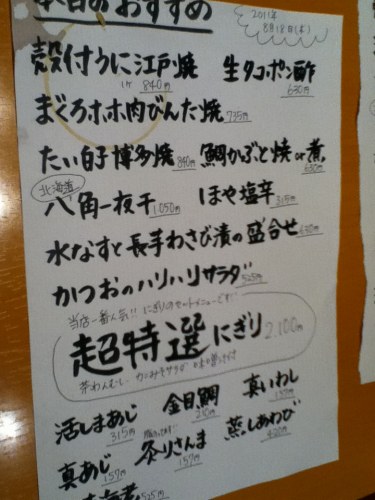 本日のおすすめ
2011年
8月18日(木)
殻付うに江戸焼 1ケ 840円
生タコポン酢 630円
まぐろホホ肉びんた焼 735円
たい白子博多焼 840円
鯛かぶと焼or煮 630円
北海道
八角一夜干 1,050円
ほや塩辛 315円
水なすと長芋わさび漬の盛合せ 630円
かつおのハリハリサラダ 525円
当店一番人気!! にぎりのセットメニューです!!
超特選にぎり 2,100円
茶わんむし カニみそサラダ 味噌汁付
活しまあじ 315円
金目鯛 210円
真いわし 157円
真あじ 157円
炙りさんま 157円
蒸しあわび 420円
525円